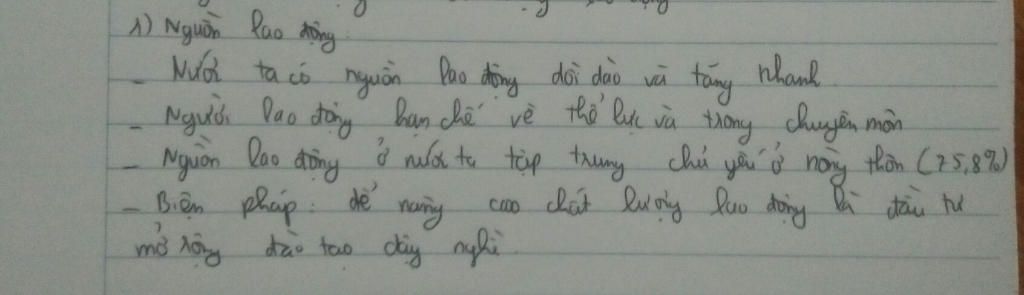 1) Nguồn lao động
- Nước ta có nguồn lao động dồi dào và tăng nhanh
- Người lao động hạn chế về thể lực và trong chuyên môn
- Nguồn lao động ở nước ta tập trung chủ yếu ở nông thôn (75,8%)
- Biện pháp: để nâng cao chất lượng lao động là đầu tư
mở rộng đào tạo dạy nghề